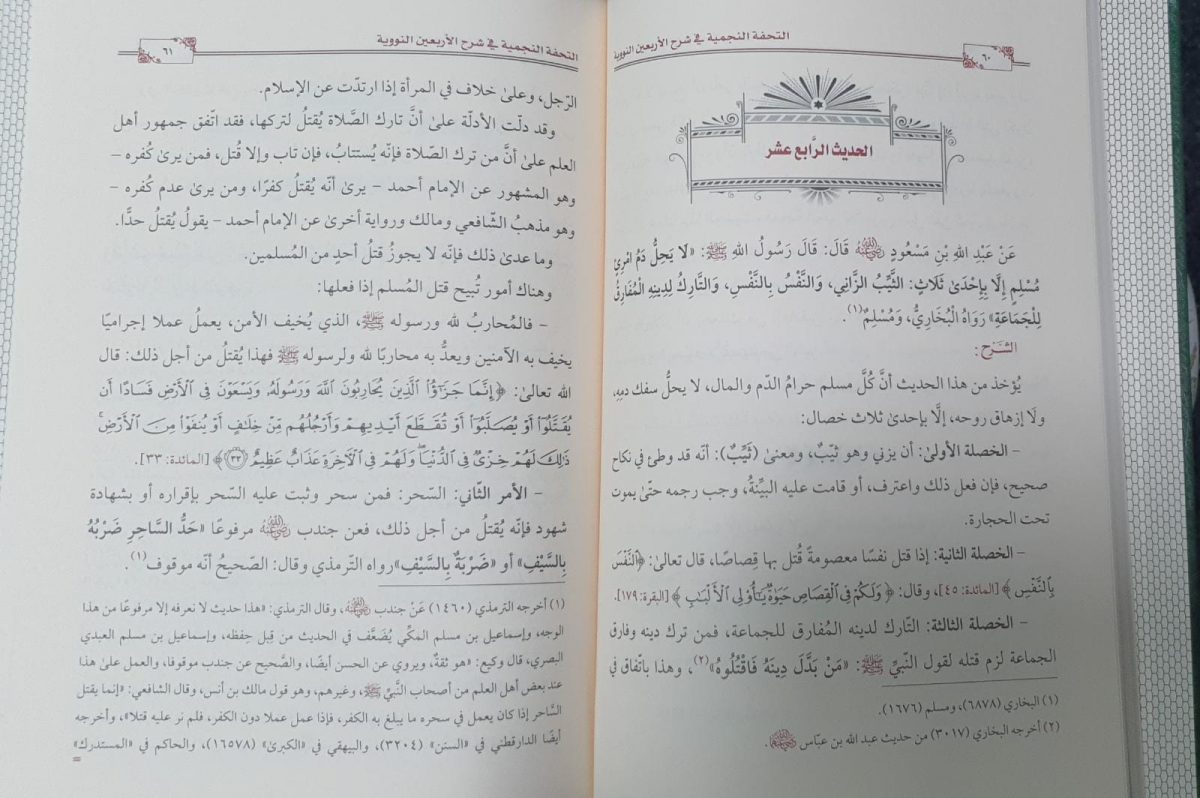 التحفة النجمية في شرح الأربعين النووية
٦٠
الحديث الرَّابع عشر
عَنْ عَبْدِ اللهِ بْنِ مَسْعُودٍ رضي الله عنه قَالَ: قَالَ رَسُولُ اللهِ ﷺ: «لَا يَحِلُّ دَمُ امْرِئٍ
مُسْلِمٍ إِلَّا بِإِحْدَىٰ ثَلَاثٍ: الثَّيِّبُ الزَّانِي، وَالنَّفْسُ بِالنَّفْسِ، وَالتَّارِكُ لِدِينِهِ الْمُفَارِقُ
لِلْجَمَاعَةِ» رَوَاهُ الْبُخَارِيُّ، وَمُسْلِمٌ(١).
الشَّرْح:
يُؤخذ من هذا الحديث أنَّ كُلَّ مسلم حرامُ الدّم والمال، لا يحلُّ سفك دمِه،
ولا إزهاق روحه، إلَّا بإحدىٰ ثلاث خصال:
– الخصلة الأولىٰ: أن يزني وهو ثيّبٌ، ومعنىٰ (ثيِّبٌ): أنّه قد وطئ في نكاح
صحيح، فإن فعل ذلك واعترف، أو قامت عليه البيِّنةُ، وجب رجمه حتّىٰ يموت
تحت الحجارة.
– الخصلة الثانية: إذا قتل نفسًا معصومةً قُتل بها قِصاصًا، قال تعالىٰ: ﴿ٱلنَّفْسَ
بِٱلنَّفْسِ﴾ [المائدة: ٤٥]، وقال: ﴿وَلَكُمْ فِي ٱلْقِصَاصِ حَيَوٰةٌ يَٰٓأُو۟لِي ٱلْأَلْبَٰبِ﴾ [البقرة: ١٧٩].
– الخصلة الثالثة: التّارك لدينه المُفارق للجماعة، فمن ترك دينه وفارق
الجماعة لزم قتله لقول النّبيِّ ﷺ: «مَنْ بَدَّلَ دِينَهُ فَاقْتُلُوهُ»(٢)، وهذا باتّفاق في
(١) البخاري (٦٨٧٨)، ومسلم (١٦٧٦).
(٢) أخرجه البخاري (٣٠١٧) من حديث عبد الله بن عبّاس رضي الله عنهما.
التحفة النجمية في شرح الأربعين النووية
٦١
الرّجل، وعلىٰ خلاف في المرأة إذا ارتدّت عن الإسلام.
وقد دلّت الأدلّة علىٰ أنَّ تارك الصَّلاة يُقتلُ لتركها، فقد اتّفق جمهور أهل
العلم علىٰ أنَّ من ترك الصّلاة فإنّه يُستتابُ، فإن تاب وإلا قُتل، فمن يرىٰ كُفره –
وهو المشهور عن الإمام أحمد – يرىٰ أنّه يُقتلُ كفرًا، ومن يرىٰ عدم كُفره –
وهو مذهبُ الشّافعي ومالك ورواية أخرىٰ عن الإمام أحمد – يقولُ يُقتلُ حدًّا.
وما عدىٰ ذلك فإنّه لا يجوزُ قتلُ أحدٍ من المُسلمين.
وهناك أمور تُبيح قتل المُسلم إذا فعلها:
– فالمُحاربُ لله ورسوله ﷺ، الذي يُخيف الأمن، يعملُ عملا إجراميًّا
يخيف به الآمنين ويعدُّ به محاربًا لله ولرسوله ﷺ فهذا يُقتلُ من أجل ذلك: قال
الله تعالىٰ: ﴿إِنَّمَا جَزَٰٓؤُا۟ ٱلَّذِينَ يُحَارِبُونَ ٱللَّهَ وَرَسُولَهُۥ وَيَسْعَوْنَ فِي ٱلْأَرْضِ فَسَادًا أَن
يُقَتَّلُوٓا۟ أَوْ يُصَلَّبُوٓا۟ أَوْ تُقَطَّعَ أَيْدِيهِمْ وَأَرْجُلُهُم مِّنْ خِلَٰفٍ أَوْ يُنفَوْا۟ مِنَ ٱلْأَرْضِ ۚ
ذَٰلِكَ لَهُمْ خِزْيٌ فِي ٱلدُّنْيَا ۖ وَلَهُمْ فِي ٱلْأَخِرَةِ عَذَابٌ عَظِيمٌ ﴿٣٣﴾﴾ [المائدة: ٣٣].
– الأمر الثّاني: السّحر: فمن سحر وثبت عليه السّحر بإقراره أو بشهادة
شهود فإنّه يُقتلُ من أجل ذلك، فعن جندب رضي الله عنه مرفوعًا «حَدُّ السَّاحِرِ ضَرْبُهُ
بِالسَّيْفِ» أو «ضَرْبَةٌ بِالسَّيْفِ» رواه التّرمذي وقال: الصّحيحُ أنّه موقوف(١).
(١) أخرجه الترمذي (١٤٦٠) عَنْ جندب رضي الله عنه، وقال الترمذي: «هذا حديث لا نعرفه إلا مرفوعًا من هذا
الوجه، وإسماعيل بن مسلم المكّي يُضَعَّف في الحديث من قِبل حِفظه، وإسماعيل بن مسلم العبدي
البصري، قال وكيع: «هو ثقةٌ، ويروي عن الحسن أيضًا، والصّحيح عن جندب موقوفا، والعمل علىٰ هذا
عند بعض أهل العلم من أصحاب النَّبيِّ ﷺ، وغيرهم، وهو قول مالك بن أنس، وقال الشافعي: «إنما يقتل
السَّاحر إذا كان يعمل في سحره ما يبلغ به الكفر، فإذا عمل عملا دون الكفر، فلم نر عليه قتلا»، وأخرجه
أيضًا الدارقطني في «السنن» (٣٢٠٤)، والبيهقي في «الكبرىٰ» (١٦٥٧٨)، والحاكم في «المستدرك»
=